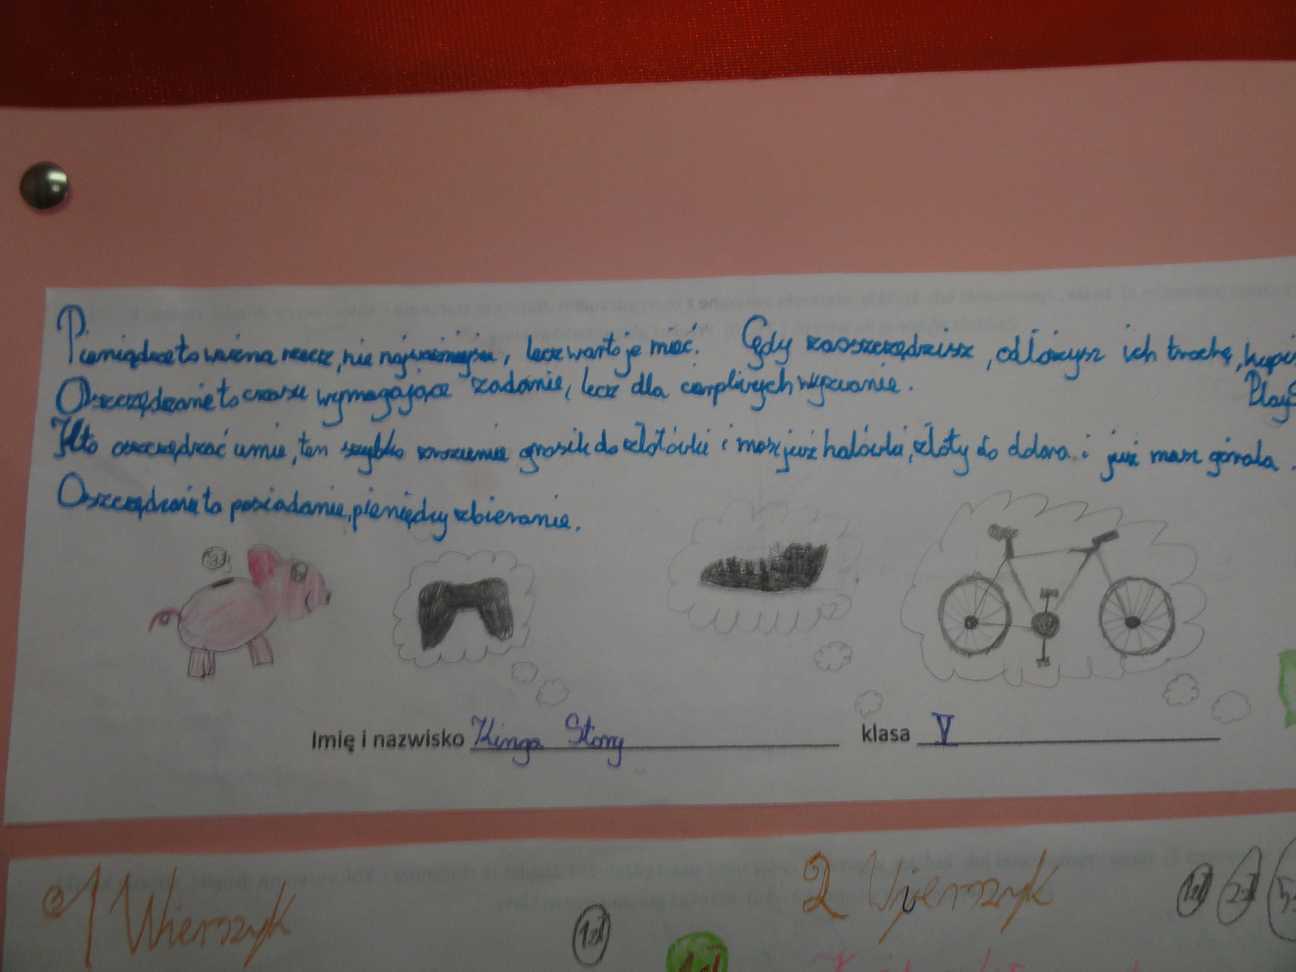 Pieniądze to ważna rzecz, nie najważniejsza, lecz warto je mieć. Gdy zaoszczędzisz, odłożysz ich trochę, kupi
Play
Oszczędzanie to czasu wymagające zadanie, lecz dla cierpliwych wyzwanie.
Kto oszczędzać umie, ten szybko zrozumie grosik do złotówki i masz już halówki, złoty do dolara i już masz górala.
Oszczędzanie to posiadanie, pieniędzy zbieranie.
1zł
Imię i nazwisko Kinga Story klasa V
1 Wierszyk 2 Wierszyk
1zł 1zł 2zł